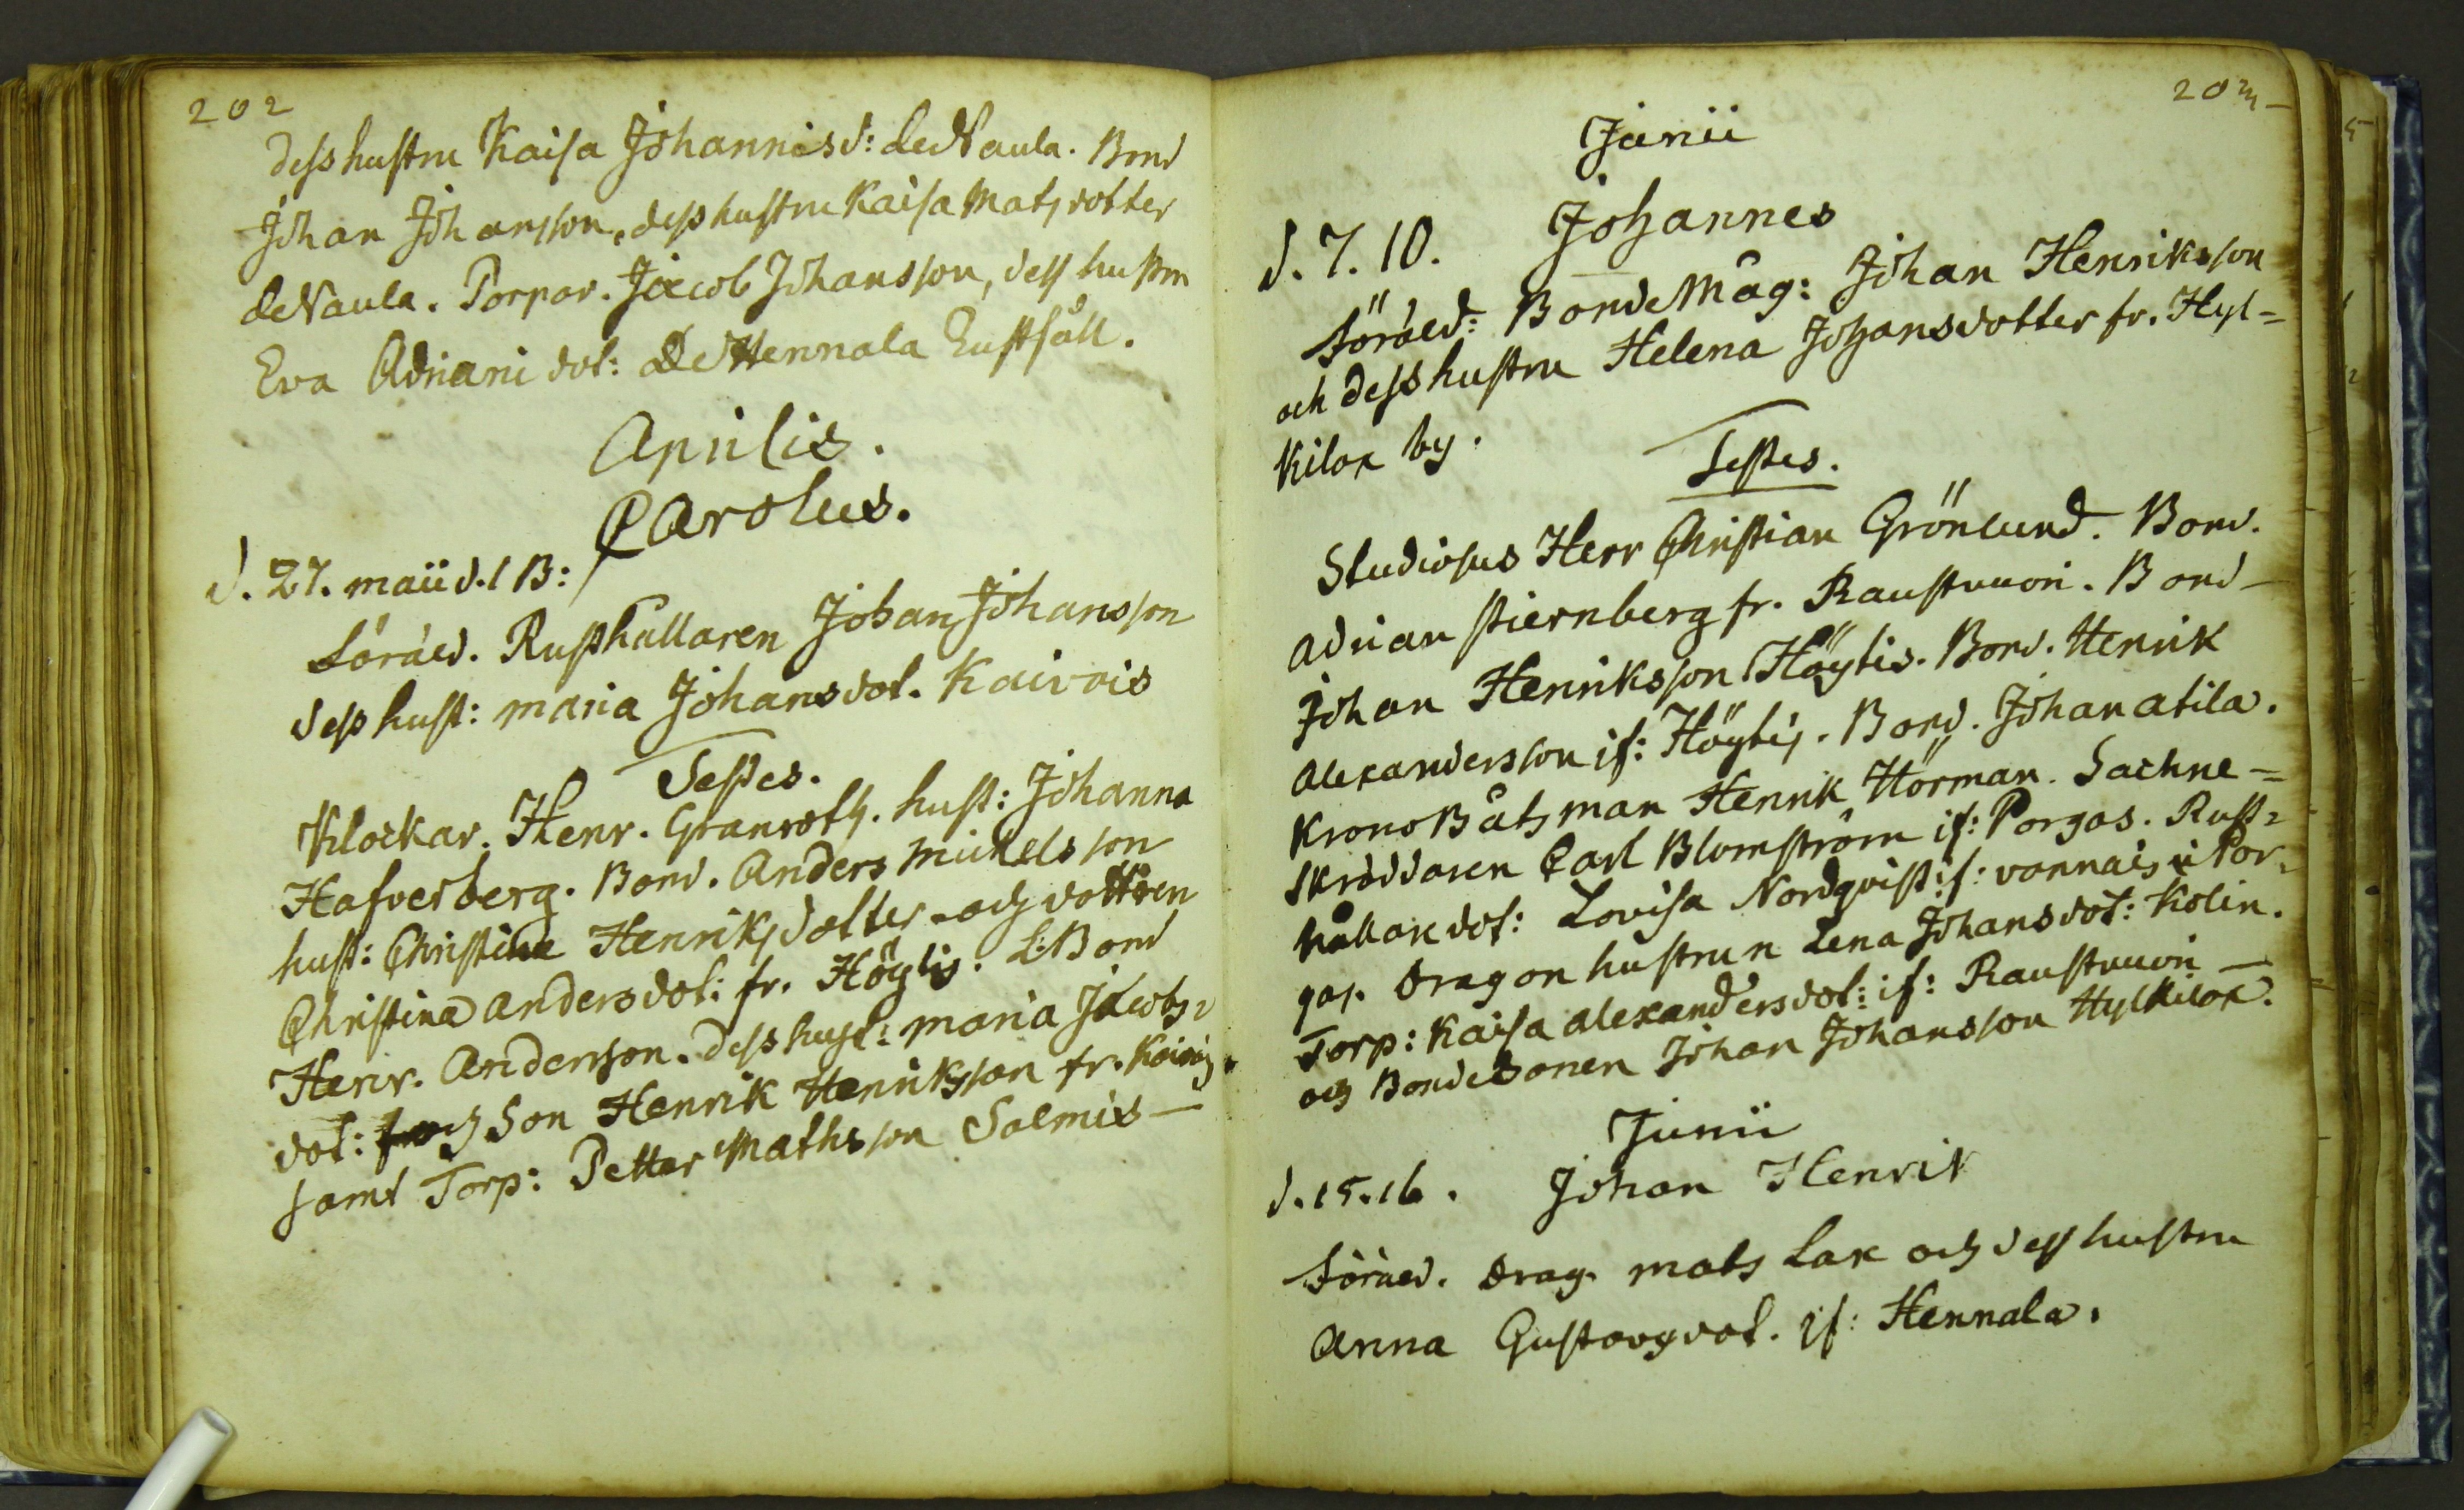 202
dess hustru Kaisa Johannisd: de Naula. Bond
Johan Johansson, dess hustru Kaisa Matsdotter
de Naula. Torpar. Jacob Johansson, dess hustru
Eva Adriani dot: de Hennala Lustfäll.
Aprilis.
Carolus.
d. 27. maii d. 1 B:
Föräld. Rusthållaren Johan Johansson
dess hust: maria Johansdot. Kairois
Testes.
Klockar. Henr. Granroth. hust: Johanna
Hafverberg. Bond. Anders Mickelsson
hust: Christina Henriksdotter och dottren
Christina Andersdot: fr. Höytis. L: Bond
Henr. Andersson. dess hust: maria Jacobs-
dot: och Son Henrik Henriksson fr. Kairois
samt Torp: Petter Mathsson Salmis —
203 —
Junii
d. 7. 10. Johannes
Föräld: Bonde Måg: Johan Henriksson
och dess hustru Helena Johansdotter fr. Hyl=
kilax by.
Testes.
Studiosus Herr Christian Grönlund. Bond.
Adrian Stiernberg fr. Raustvuori. Bond —
Johan Henriksson Höytis. Bond. Henrik
Alexandersson if: Höytis. Bond. Johan Atila.
Krono Båtsman Henrik Hörman. Sackne=
skräddaren Carl Blomström if: Porgas. Rust=
hållaredot: Lovisa Nordqvist if: vannais i Por=
gas. Dragon hustrun Lena Johansdot: Kolin.
Torp: Kaisa Alexandersdot: if: Raustvuori —
och Bondesonen Johan Johansson Hylkilax.
Junii
d. 15. 16. Johan Henrik
Föräld. Drag. mats Lax och dess hustru
Anna Gustavsdot. if: Hennala.
5